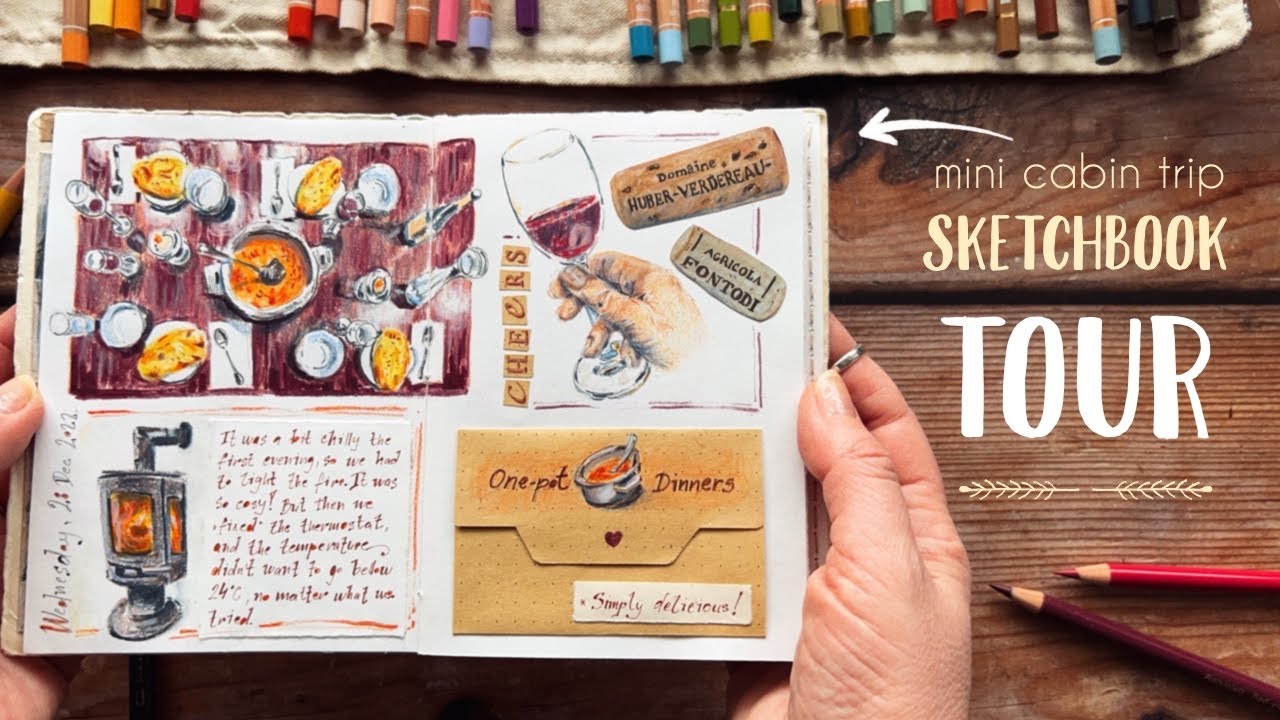 mini cabin trip
SKETCHBOOK
TOUR
Wednesday, 28 Dec 2022.
It was a bit chilly the
first evening, so we had
to light the fire. It was
so cosy! But then we
"fixed" the thermostat,
and the temperature
didn't want to go below
24°C, no matter what we
tried.
CHEERS
Domaine
HUBER-VERDEREAU
AGRICOLA
FONTODI
One-pot Dinners
* Simply delicious!